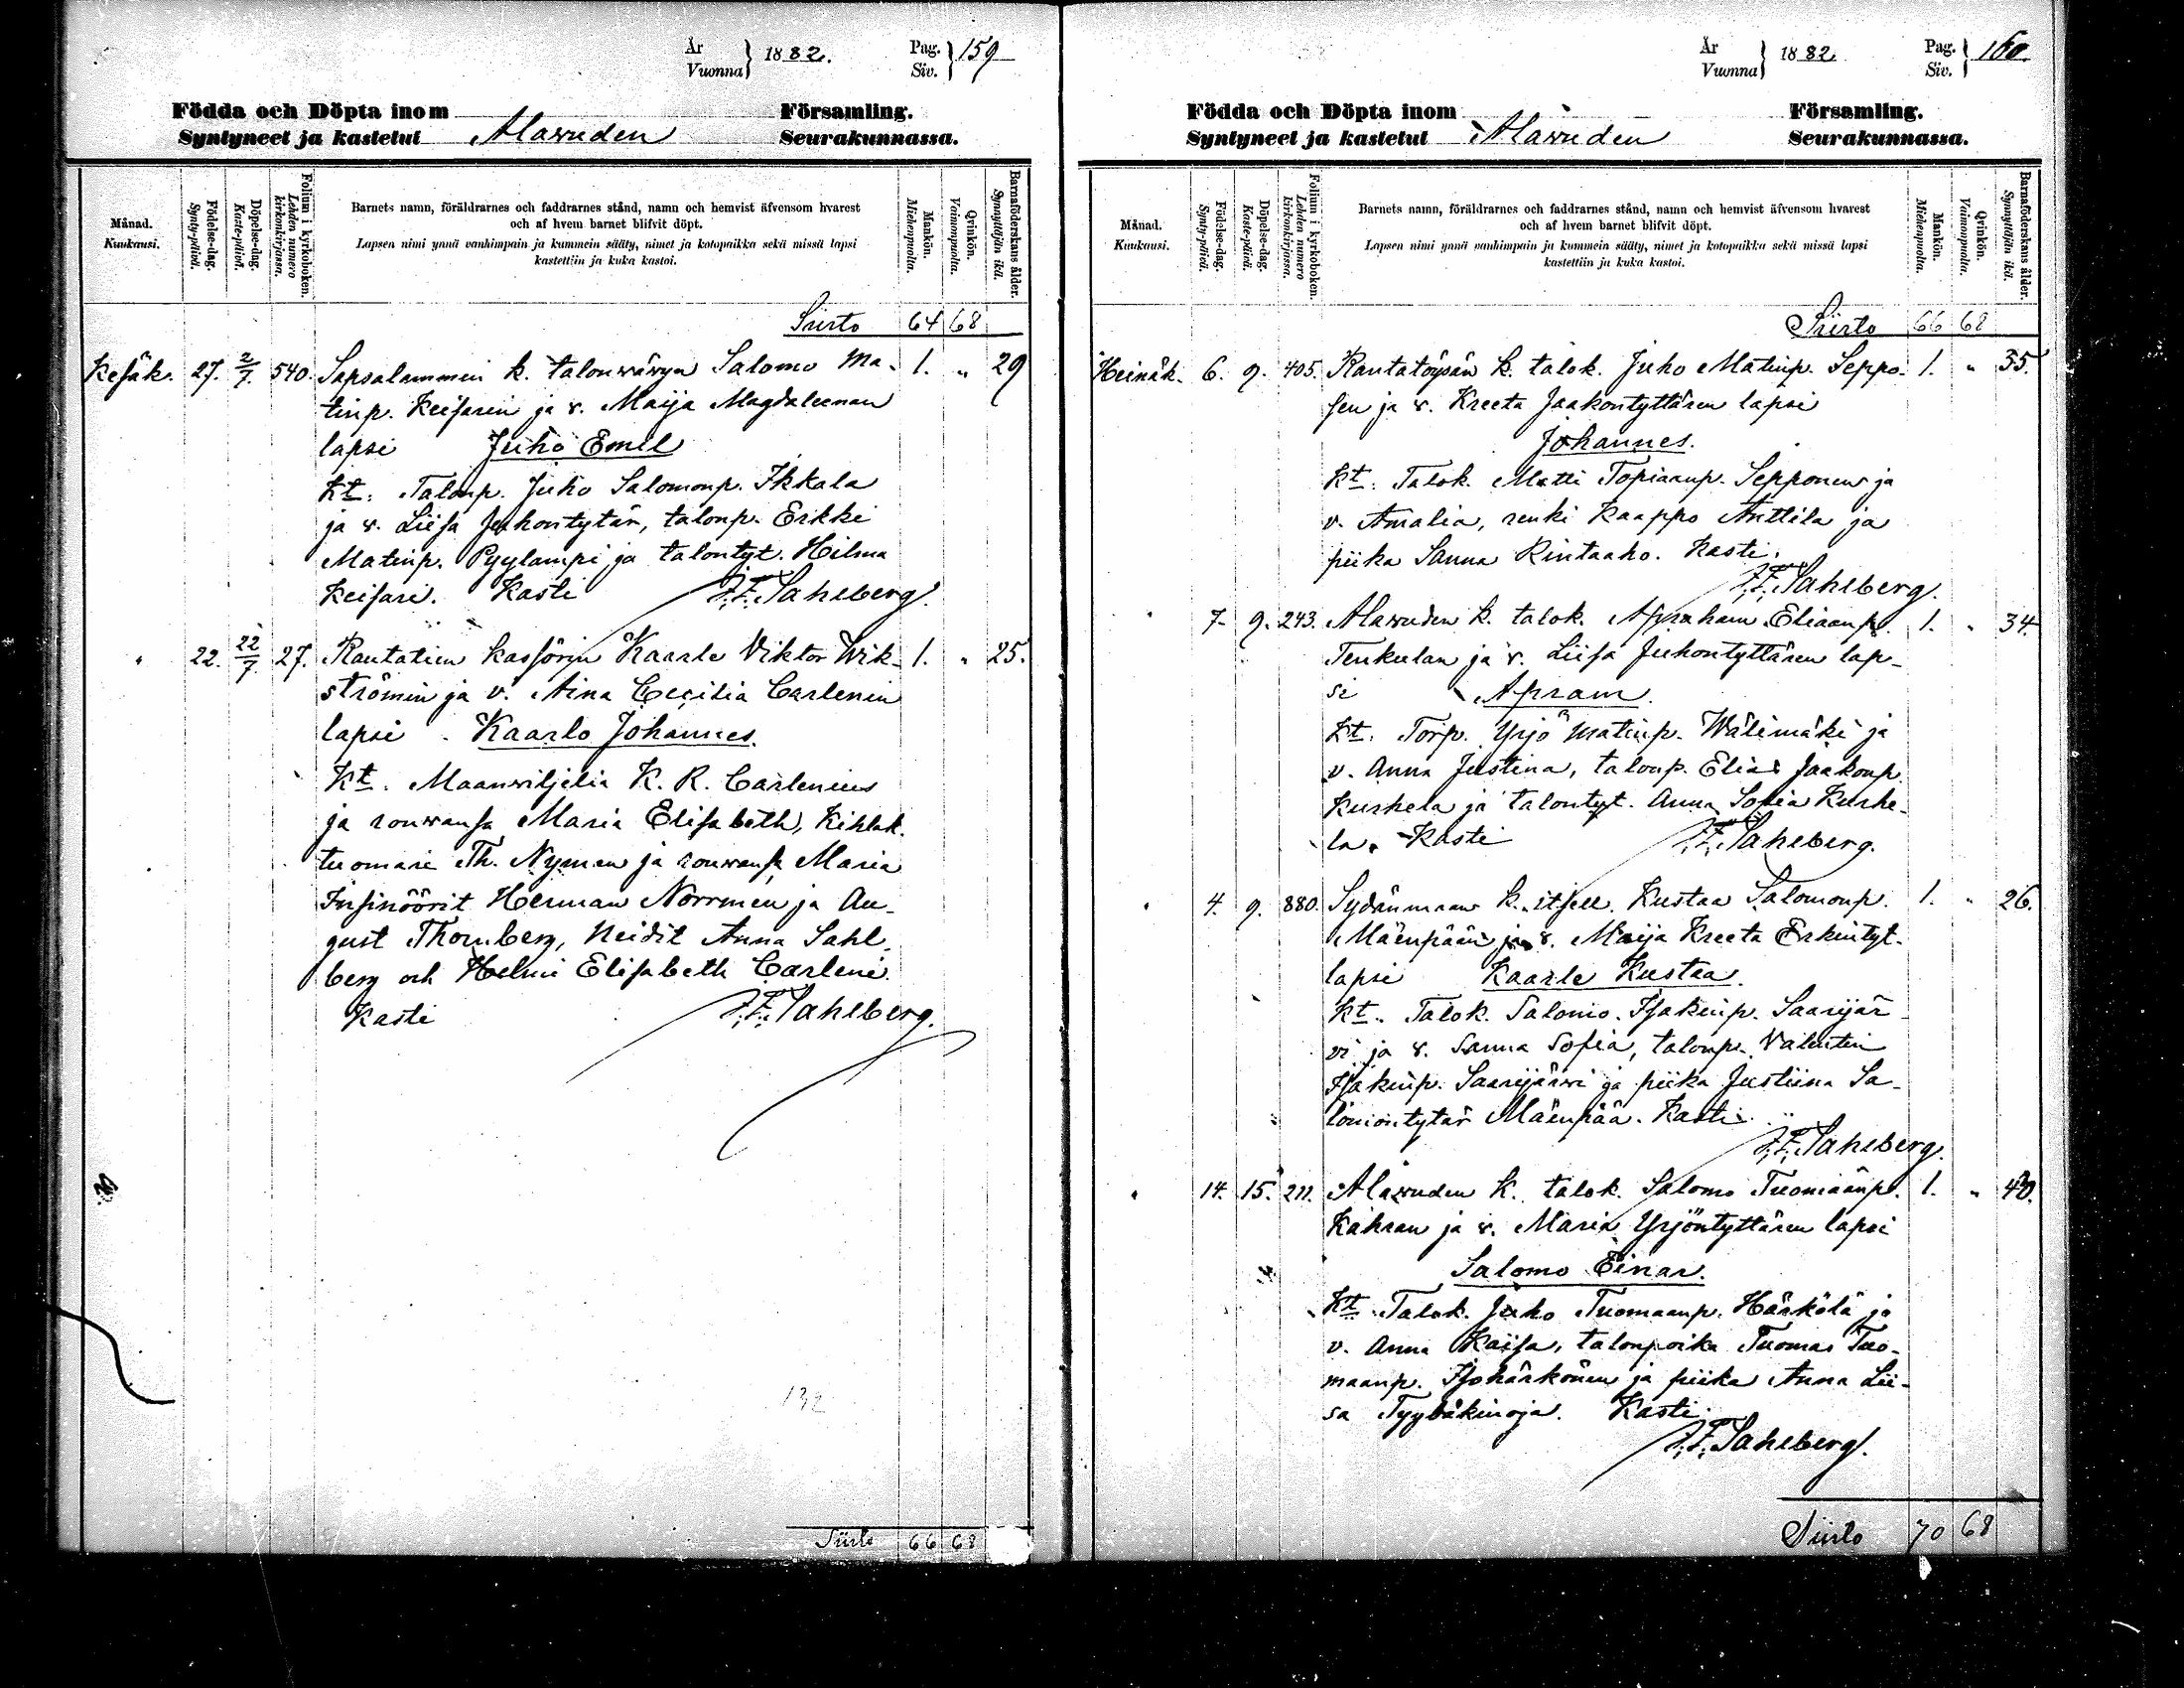 År
Vuonna } 1882. Pag.
Siv. } 159
Födda och Döpta inom Församling.
Syntyneet ja kastetut Alawuden Seurakunnassa.
Månad.
Kuukausi.
Födelse-dag.
Synty-päivä.
Döpelse-dag.
Kaste-päivä.
Folium i kyrkoboken.
Lehden numero
kirkonkirjassa.
Barnets namn, föräldrarnes och faddrarnes stånd, namn och hemvist äfvensom hvarest
och af hvem barnet blifvit döpt.
Lapsen nimi ynnä vanhimpain ja kummein sääty, nimet ja kotopaikka sekä missä lapsi
kastettiin ja kuka kastoi.
Mankön.
Miehenpuolta.
Qvinkön.
Vaimonpuolta.
Barnaföderskans ålder.
Synnyttäjän ikä.
Siirto 64 68
Kesäk. 27. 2/7. 540. Sapsalammin k. talonwäwyn Salomo Ma- 1. " 29
tinp. Keisarin ja v. Maija Magdaleenan
lapsi Juho Emil
Kt: Talonp. Juho Salomonp. Ikkala
ja v. Liisa Juhontytär, talonp. Erkki
Matinp. Pyylampi ja talontyt. Hilma
Keisari. Kasti F.F. Sahlberg.
" 22. 22/7. 27. Rautatien kassörin Kaarle Viktor Wik- 1. " 25.
strömin ja v. Aina Cecilia Carlenin
lapsi Kaarlo Johannes.
Kt. Maanwiljeliä K. R. Carlenius
ja rouwansa Maria Elisabeth, Kihlak.
tuomari Th. Nyman ja rouwansa Maria
Insinöörit Herman Norrmen ja Au-
gust Thornberg, Neidit Anna Sahl-
berg och Helmi Elisabeth Carleni.
Kasti F.F. Sahlberg.
132
Siirto 66 68
År
Vuonna } 1882 Pag.
Siv. } 160.
Födda och Döpta inom Församling.
Syntyneet ja kastetut Alawuden Seurakunnassa.
Månad.
Kuukausi.
Födelse-dag.
Synty-päivä.
Döpelse-dag.
Kaste-päivä.
Folium i kyrkoboken.
Lehden numero
kirkonkirjassa.
Barnets namn, föräldrarnes och faddrarnes stånd, namn och hemvist äfvensom hvarest
och af hvem barnet blifvit döpt.
Lapsen nimi ynnä vanhimpain ja kummein sääty, nimet ja kotopaikka sekä missä lapsi
kastettiin ja kuka kastoi.
Mankön.
Miehenpuolta.
Qvinkön.
Vaimonpuolta.
Barnaföderskans ålder.
Synnyttäjän ikä.
Siirto 66 68
Heinäk. 6. 9. 405. Rantatöysän k. talok. Juho Matinp. Seppo- 1. " 35.
sen ja v. Kreeta Jaakontyttären lapsi
Johannes.
Kt. Talok. Matti Topiaanp. Sepponen ja
v. Amalia, renki Kaappo Anttila ja
piika Sanna Rintaaho. Kasti.
F.F. Sahlberg.
" 7. 9. 243. Alawuden k. talok. Apraham Eliaanp. 1. " 34.
Tenkulan ja v. Liisa Juhontyttären lap-
si Apram.
Kt. Torp. Yrjö Matinp. Wälimäki ja
v. Anna Justina, talonp. Elias Jaakonp.
Kurhela ja talontyt. Anna Sofia Kurhe-
la. Kasti F.F. Sahlberg.
" 4. 9. 880. Sydänmaan k. itsell. Kustaa Salomonp. 1. " 26.
Mäenpään ja v. Maija Kreeta Erkintyt.
lapsi Kaarle Kustaa.
Kt. Talok. Salomo Isakinp. Saarijär-
vi ja v. Sanna Sofia, talonp. Valentin
Isakinp. Saarijärwi ja piika Justiina Sa-
lomontytär Mäenpää. Kasti
F.F. Sahlberg.
" 14. 15. 211. Alawuden k. talok. Salomo Tuomaanp. 1. " 40.
Kahran ja v. Maria Yrjöntyttären lapsi
Salomo Einar.
Kt Talok. Juho Tuomaanp. Härkölä ja
v. Anna Kaisa, talonpoika Tuomas Tuo-
maanp. Isohärkönen ja piika Anna Lii-
sa Tyybäkinoja. Kasti.
F.F. Sahlberg.
Siirto 70 68